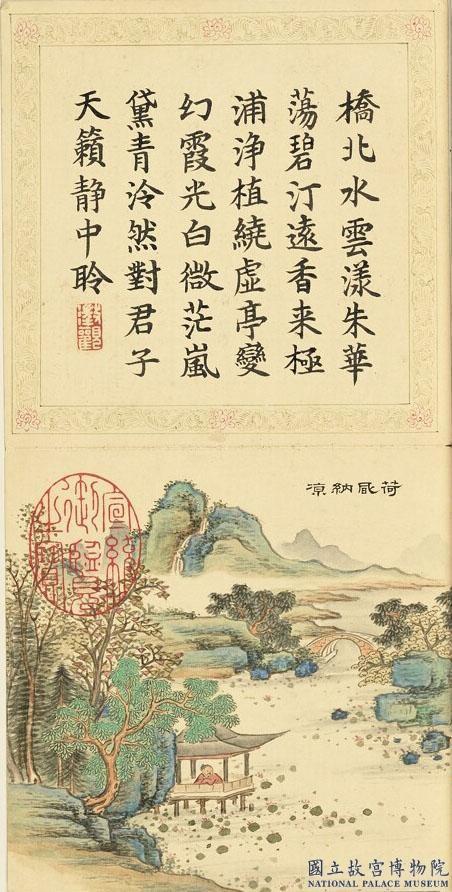 橋北水雲漾朱華
蕩碧汀遠香来極
浦浄植繞虛亭變
幻霞光白微茫嵐
黛青泠然對君子
天籟静中聆
荷凮納凉
國立故宮博物院
NATIONAL PALACE MUSEUM